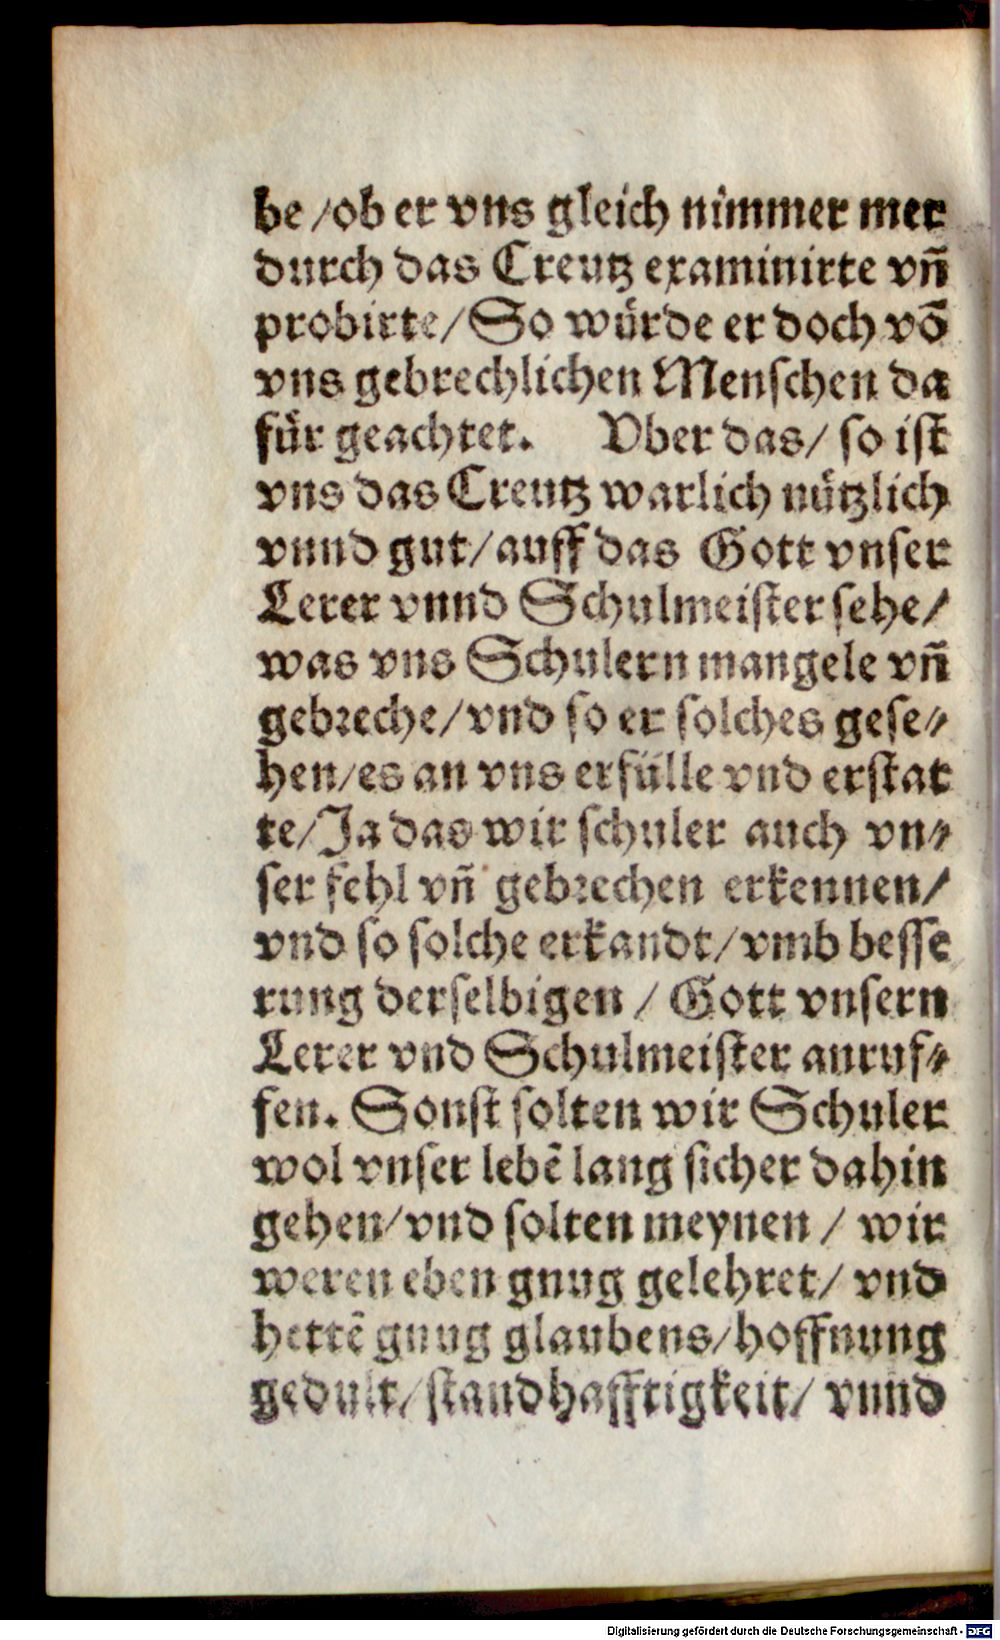 be /ob er vns gleich nimmer mer
durch das Creutz examinirte vn̄
probirte/ So würde er doch vō
vns gebrechlichen Menschen da
für geachtet. Vber das/ so ist
vns das Creutz warlich nützlich
vnnd gut/ auff das Gott vnser
Lerer vnnd Schulmeister sehe/
was vns Schulern mangele vn̄
gebreche/ vnd so er solches gese⸗
hen/es an vns erfülle vnd erstat
te/ Ja das wir schuler auch vn⸗
ser fehl vn̄ gebrechen erkennen/
vnd so solche erkandt/ vmb besse
rung derselbigen / Gott vnsern
Lerer vnd Schulmeister anruf⸗
fen. Sonst solten wir Schuler
wol vnser lebē lang sicher dahin
gehen/ vnd solten meynen / wir
weren eben gnug gelehret/ vnd
hettē gnug glaubens/ hoffnung
gedult/ standhafftigkeit/ vnnd
Digitalisierung gefördert durch die Deutsche Forschungsgemeinschaft - DFG